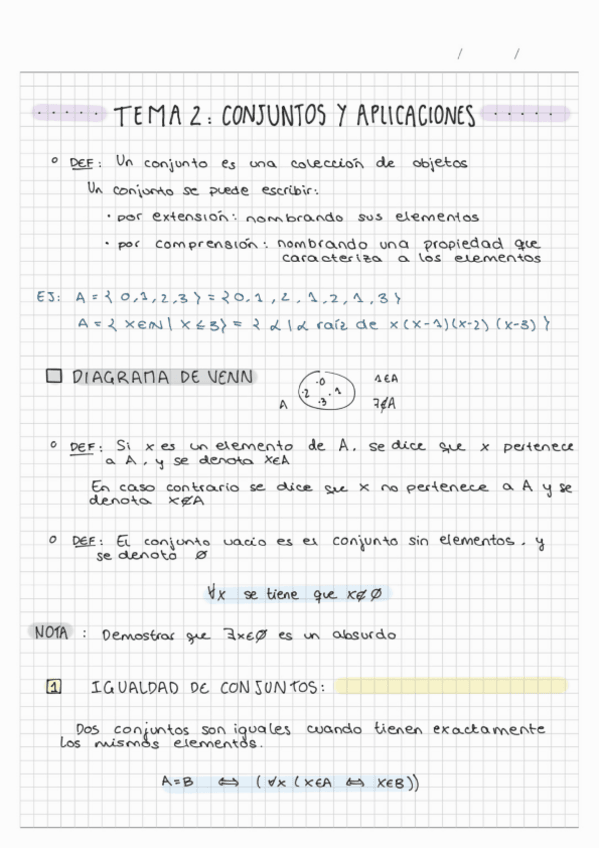 / /
TEMA 2: CONJUNTOS Y APLICACIONES
DEF: Un conjunto es una colección de objetos
Un conjunto se puede escribir:
· por extensión: nombrando sus elementos
· por comprensión: nombrando una propiedad que
caracteriza a los elementos
EJ: A = { 0,1,2,3 } = {0,1,2,1,2,1,3}
A = { x∈ℕ | x≤3} = { α | α raíz de x(x-1)(x-2)(x-3) }
DIAGRAMA DE VENN
·0 ·2 ·1 ·3
A
1∈A
7∉A
DEF: Si x es un elemento de A, se dice que x pertenece
a A, y se denota x∈A
En caso contrario se dice que x no pertenece a A y se
denota x∉A
DEF: El conjunto vacio es el conjunto sin elementos, y
se denota ∅
∀x se tiene que x∉∅
NOTA: Demostrar que ∃x∈∅ es un absurdo
1 IGUALDAD DE CONJUNTOS:
Dos conjuntos son iguales cuando tienen exactamente
los mismos elementos.
A=B ⇔ (∀x (x∈A ⇔ x∈B))